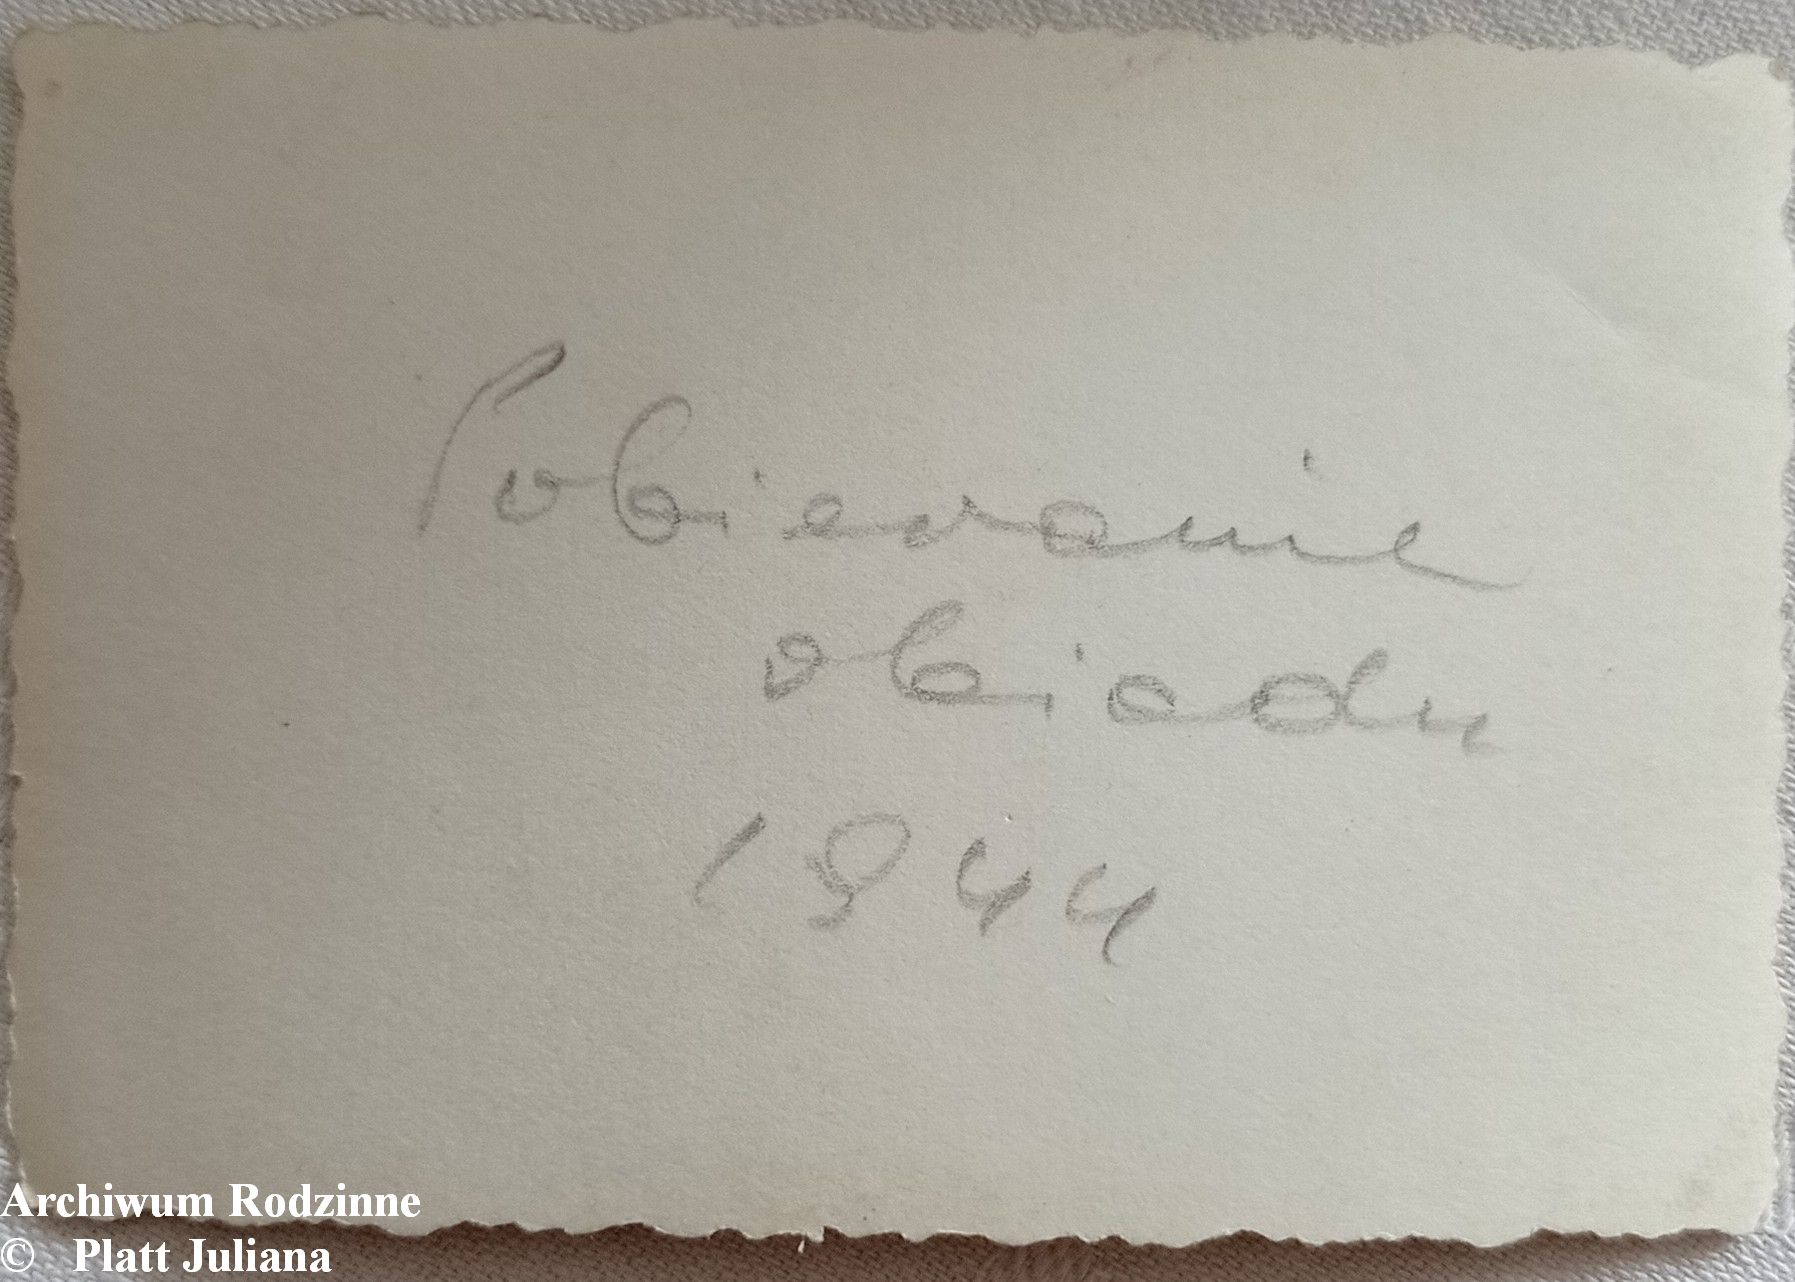 Pobieranie
obiadu
1944
Archiwum Rodzinne
© Platt Juliana